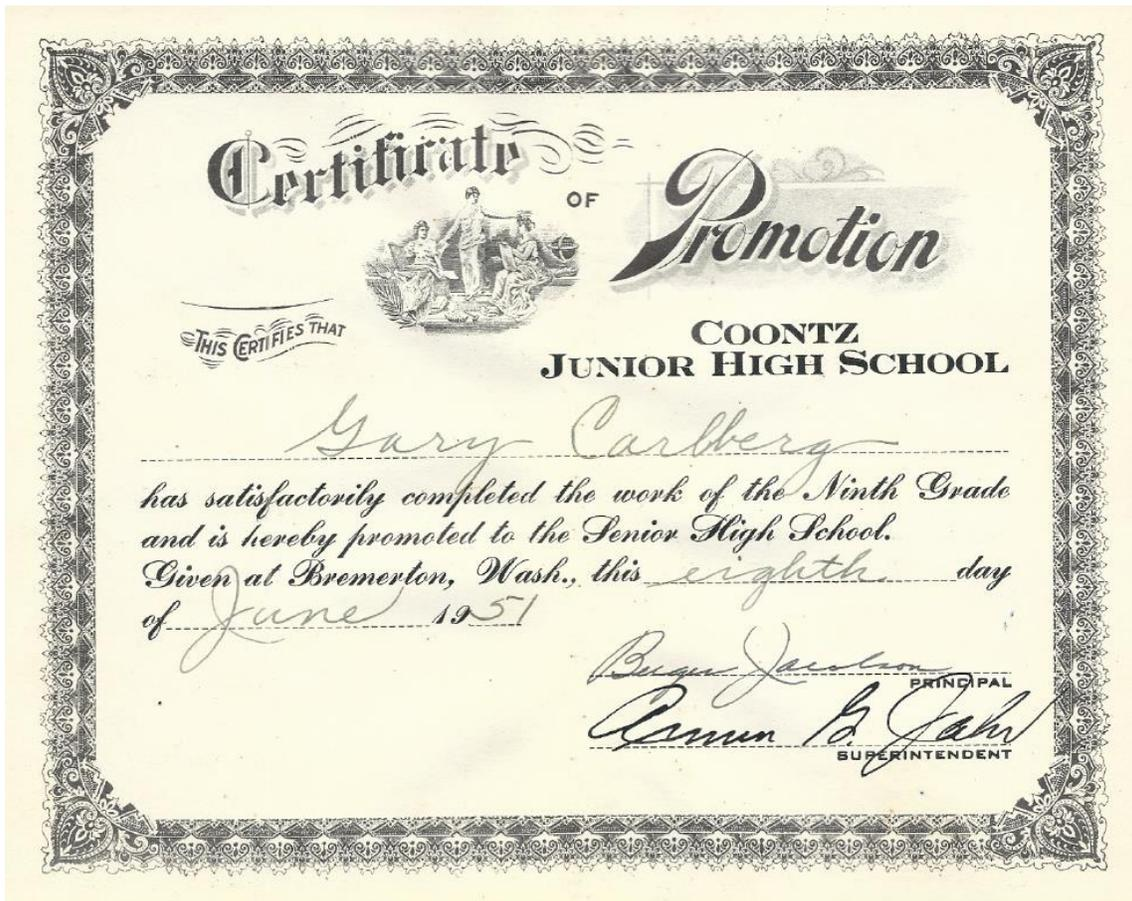 Certificate OF Promotion
THIS CERTIFIES THAT
COONTZ
JUNIOR HIGH SCHOOL
Gary Carlberg
has satisfactorily completed the work of the Ninth Grade
and is hereby promoted to the Senior High School.
Given at Bremerton, Wash., this eighth day
of June 1951
Jacobson
PRINCIPAL
Armin G. Jahr
SUPERINTENDENT